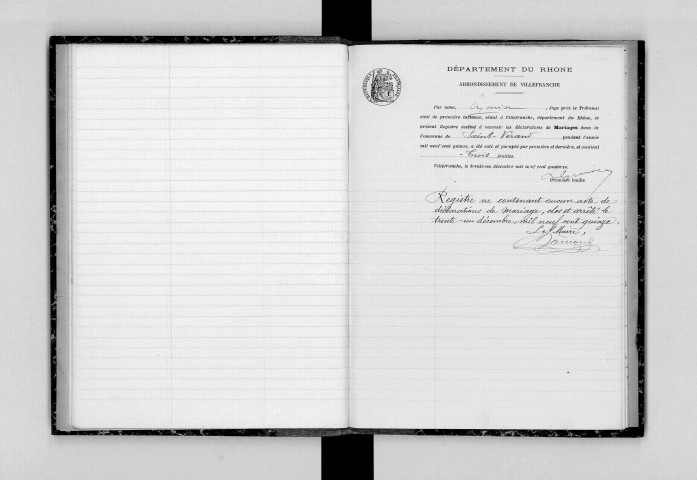 DÉPARTEMENT DU RHONE
ARRONDISSEMENT DE VILLEFRANCHE
Par nous, , Juge près le Tribunal
civil de première instance, séant à Villefranche, département du Rhône, le
présent Registre destiné à recevoir les déclarations de Mariages dans la
Commune de Saint-Vérand pendant l'année
mil neuf cent quinze, a été coté et paraphé par première et dernière, et contient
trois feuilles.
Villefranche, le trente-un décembre mil neuf cent quatorze.
Première feuille
Registre ne contenant aucun acte de
déclarations de mariage, clos et arrêté le
trente-un décembre, mil neuf cent quinze.
Le Maire,